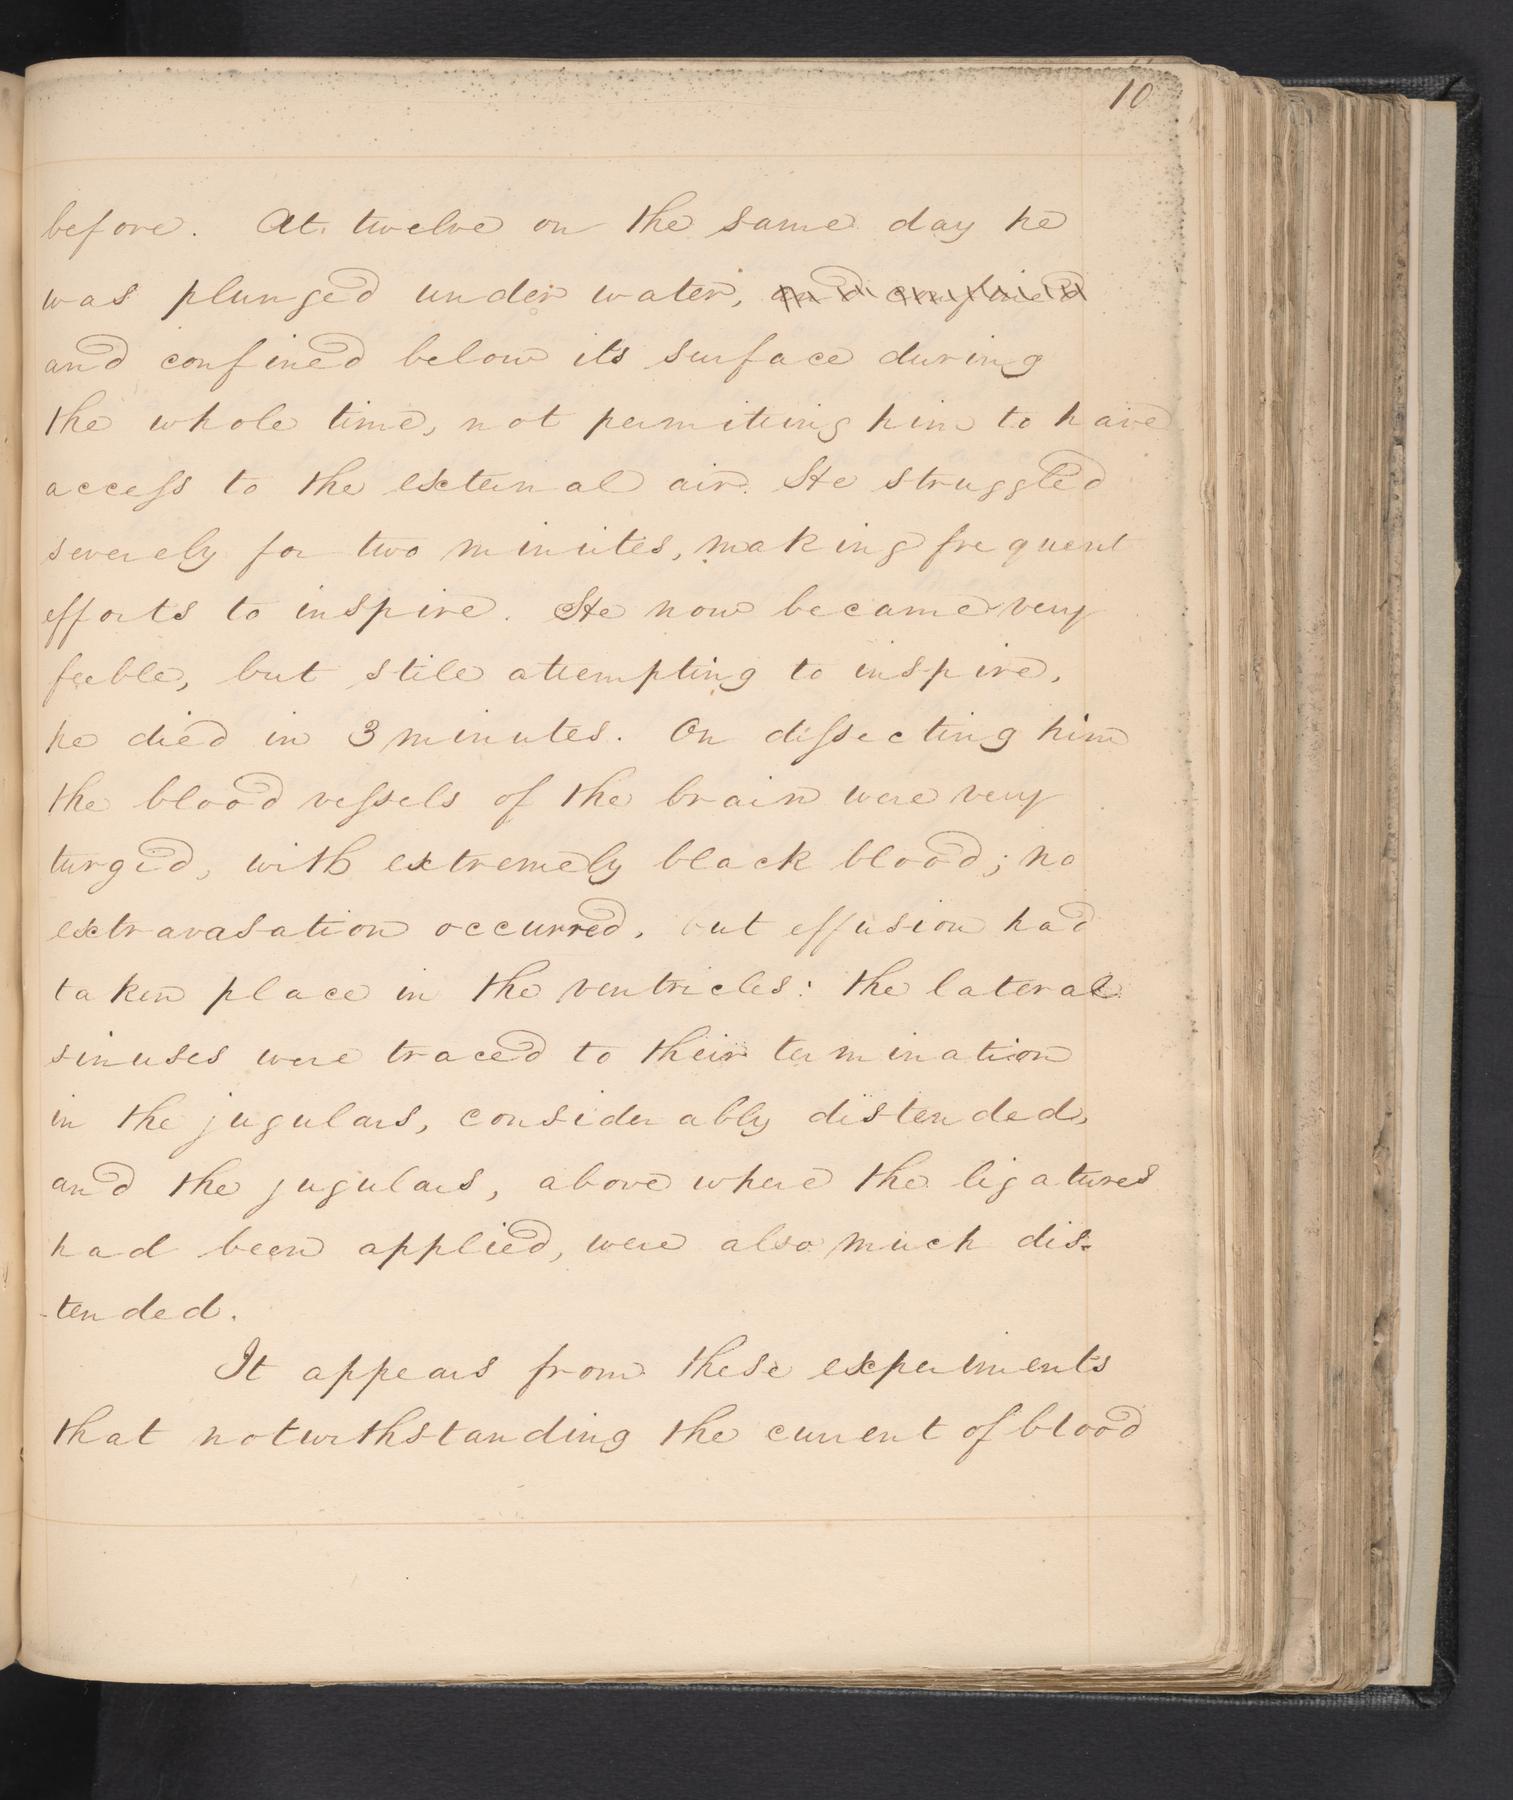 10
before. At twelve on the same day he
was plunged under water, and confined
and confined below its surface during
the whole time, not permiting him to have
access to the external air. He struggled
severely for two minutes, making frequent
efforts to inspire. He now became very
feeble, but stile attempting to inspire,
he died in 3 minutes. On dissecting him
the blood vessels of the brain were very
turgid, with extremely black blood; no
extravasation occurred, but effusion had
taken place in the ventricles: the lateral
sinuses were traced to their termination
in the jugulars, considerably distended,
and the jugulars, above where the ligatures
had been applied, were also much dis-
-tended.
It appears from these experiments
that notwithstanding the current of blood